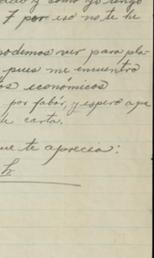 como yo tengo
y por eso no te he
podemos ver para pla-
pues me encuentro
os económicos
por fabór, y espero que
carta.
que te aprecia: